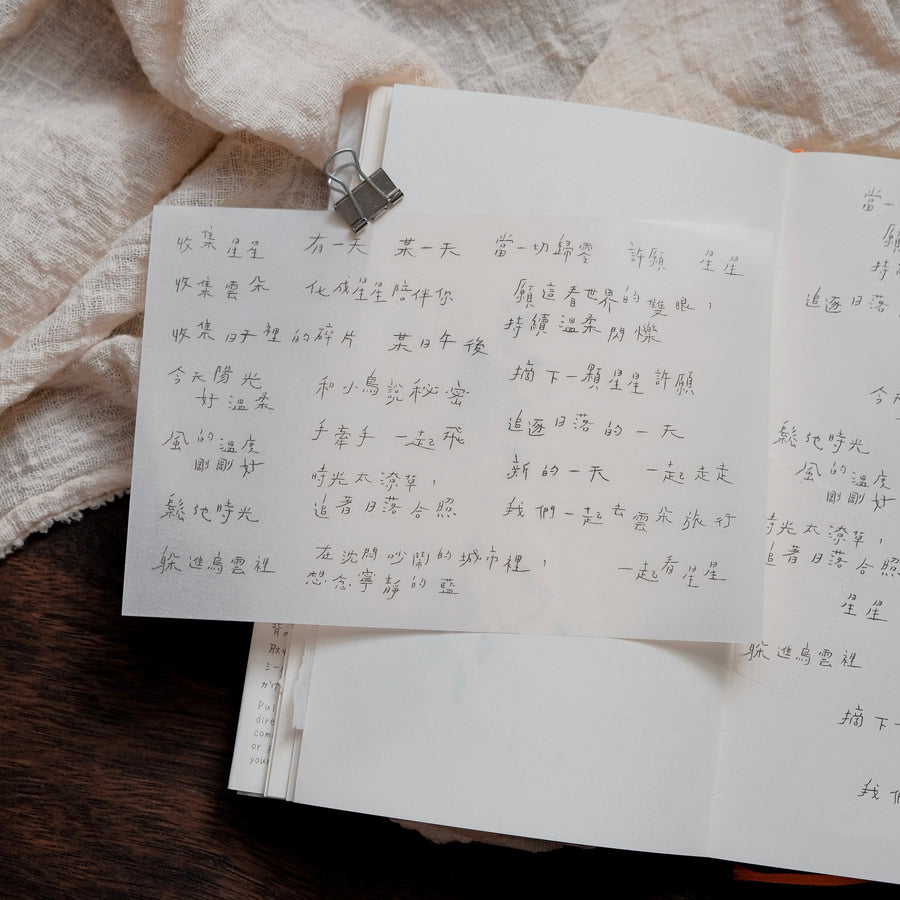 收集星星
收集雲朵
收集日子裡的碎片
今天陽光
好溫柔
風的溫度
剛剛好
鬆弛時光
躲進烏雲裡
有一天
某一天
化成星星陪伴你
某日午後
和小鳥說秘密
手牽手 一起飛
時光太潦草，
追著日落合照
在沈悶吵鬧的城市裡，
想念寧靜的藍
當一切歸零
許願
星星
願這看世界的雙眼，
持續溫柔閃爍
摘下一顆星星許願
追逐日落的一天
新的一天
一起走走
我們一起去雲朵旅行
一起看星星
當一
願
持
追逐日落
今天
鬆弛時光
風的溫度
剛剛好
時光太潦草，
追著日落合照
星星
躲進烏雲裡
摘下一
我們
取
Pul
dire
com
or
you